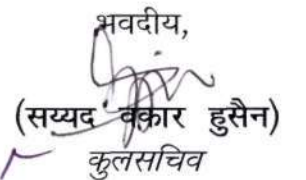 भवदीय,
(सय्यद वक़ार हुसैन)
कुलसचिव